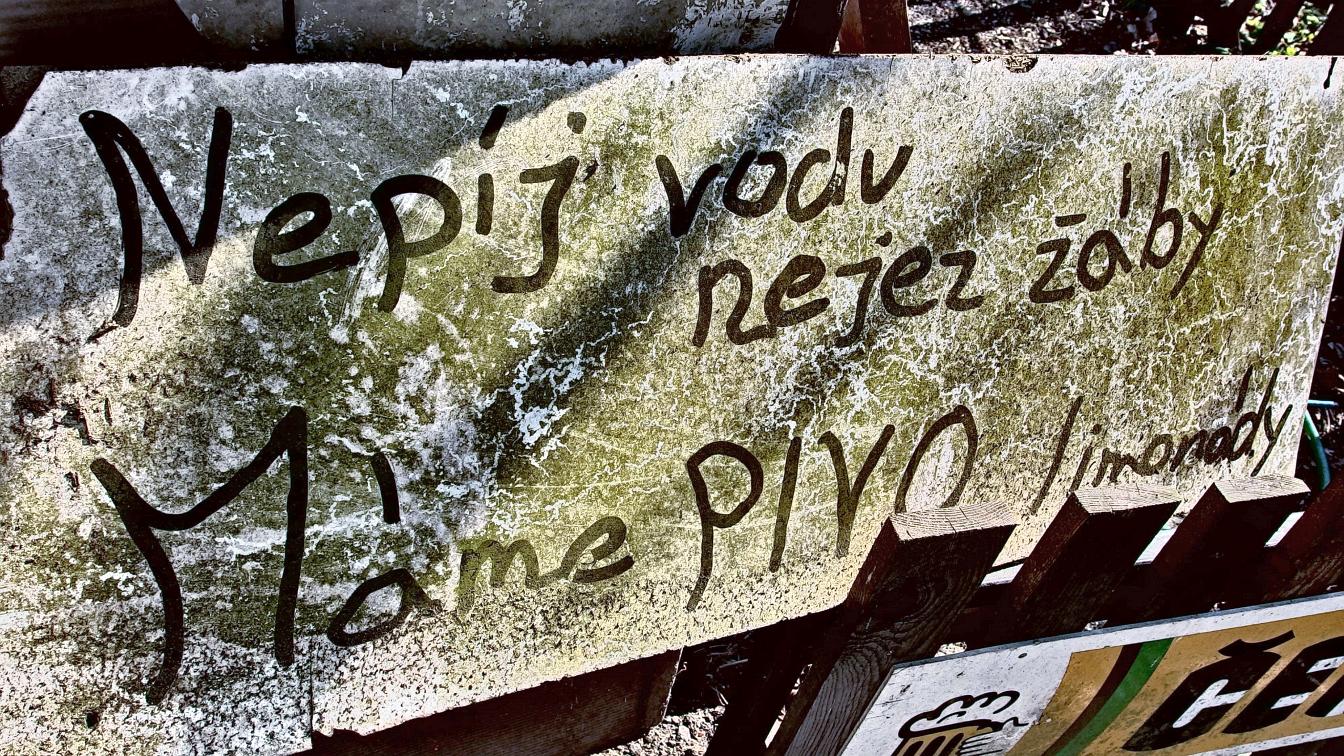 Nepíj vodu
nejez žáby
Máme PIVO limonády